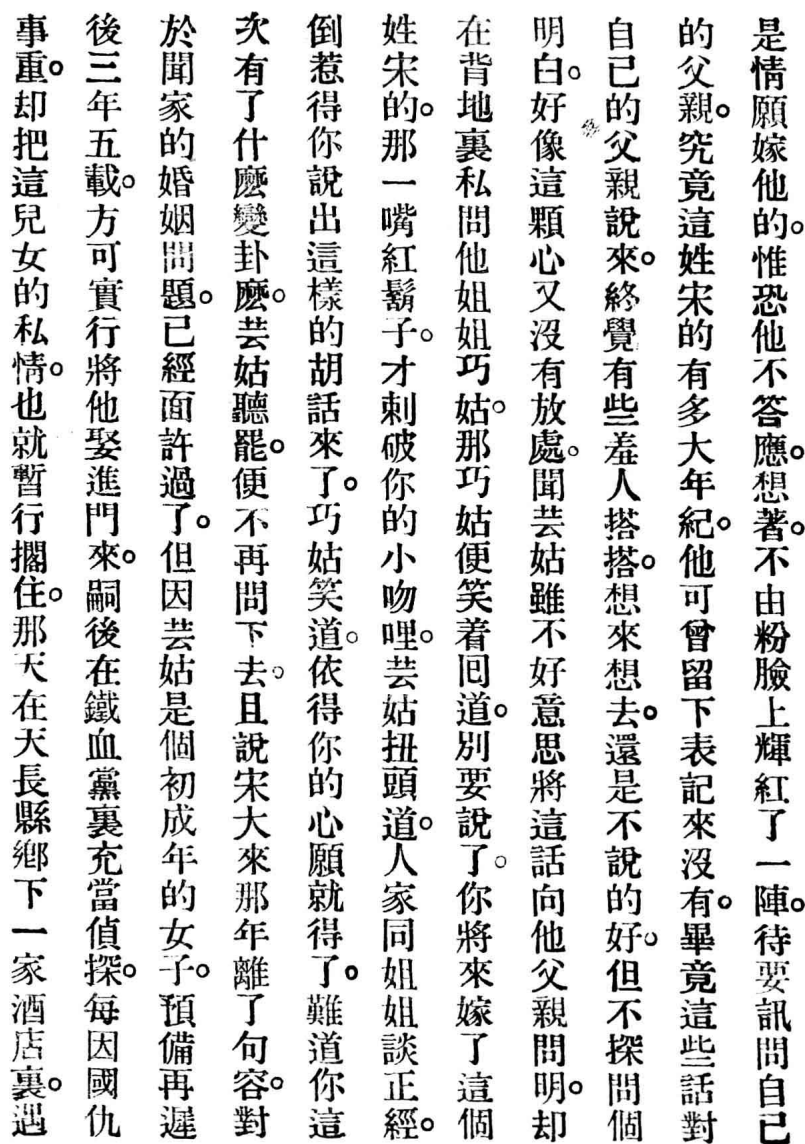 是情願嫁他的。惟恐他不答應。想著。不由粉臉上輝紅了一陣。待要訊問自已
的父親。究竟這姓宋的有多大年紀。他可曾留下表記來沒有。畢竟這些話對
自己的父親說來。終覺有些羞人搭搭。想來想去。還是不說的好。但不探問個
明白。好像這顆心又沒有放處。聞芸姑雖不好意思將這話向他父親問明。却
在背地裏私問他姐姐巧姑。那巧姑便笑着囘道。別要說了。你將來嫁了這個
姓宋的。那一嘴紅鬍子。才刺破你的小吻哩。芸姑扭頭道。人家同姐姐談正經。
倒惹得你說出這樣的胡話來了。巧姑笑道。依得你的心願就得了。難道你這
次有了什麽變卦麽。芸姑聽罷。便不再問下去。且說宋大來那年離了句容。對
於聞家的婚姻問題。已經面許過了。但因芸姑是個初成年的女子。預備再遲
後三年五載。方可實行將他娶進門來。嗣後在鐵血黨裏充當偵探。每因國仇
事重。却把這兒女的私情。也就暫行擱住。那天在天長縣鄉下一家酒店裏。遇